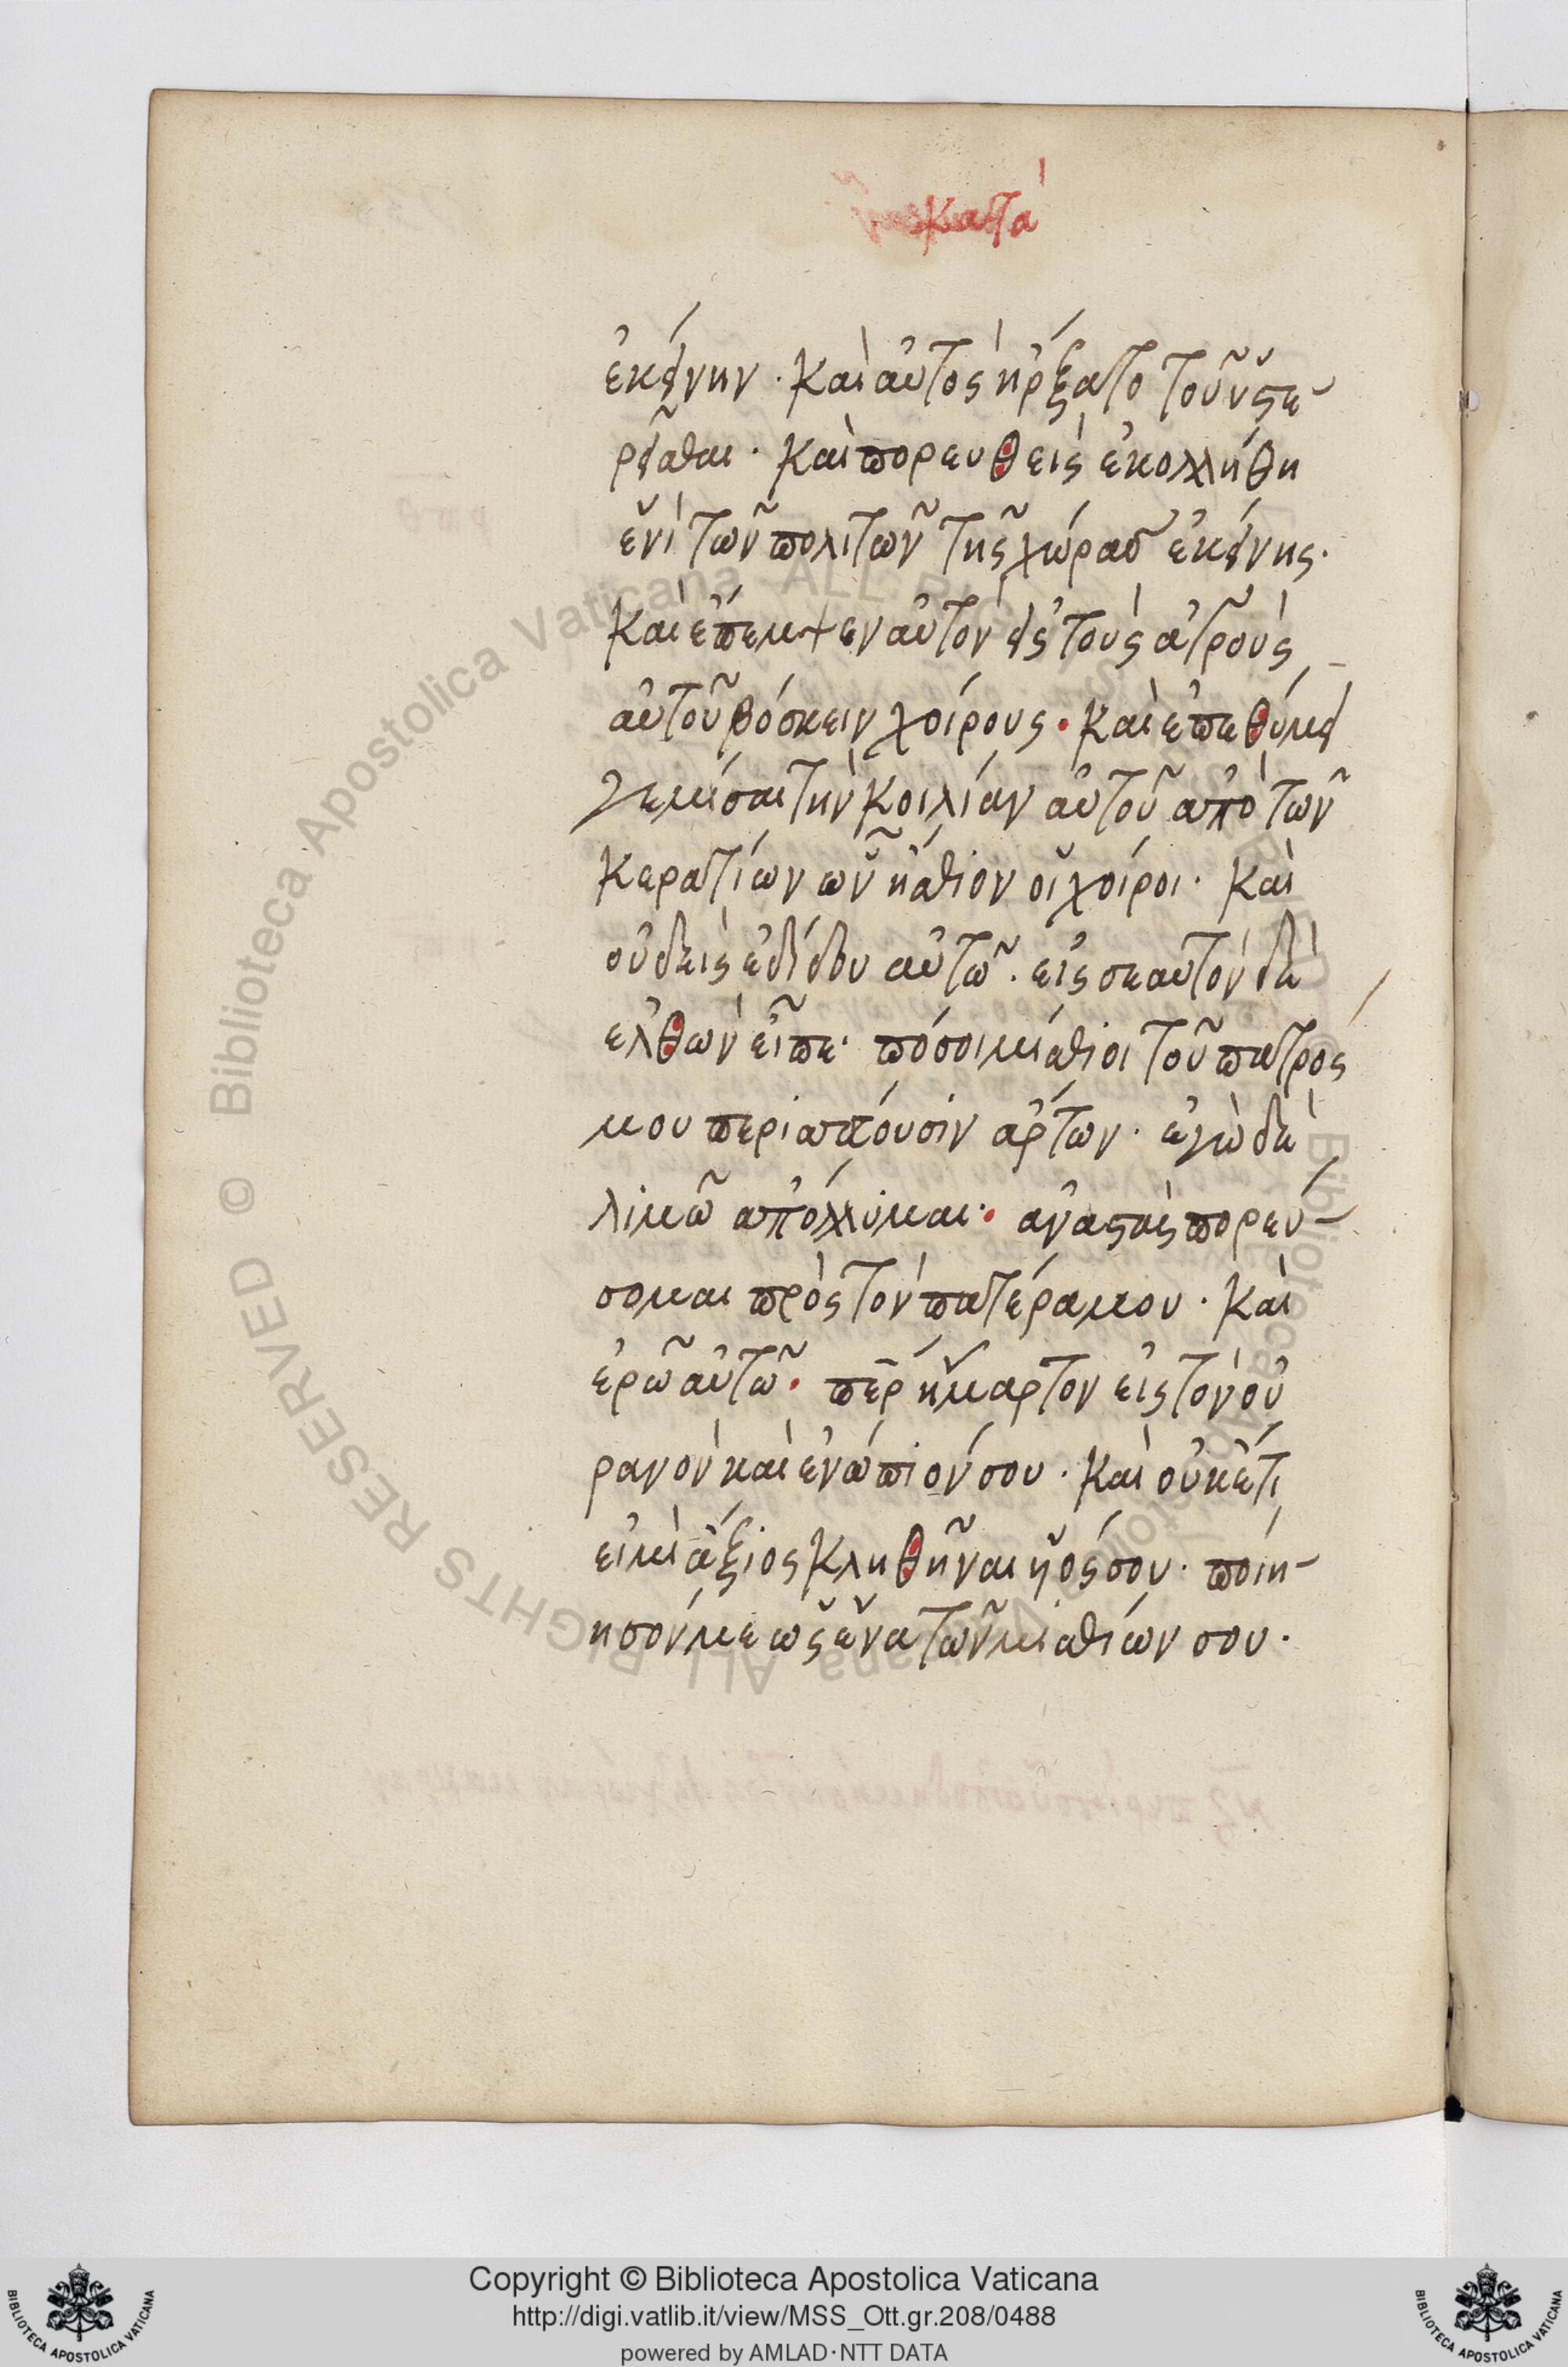 κατὰ
ἐκείνην · καὶ αὐτὸς ἤρξατο τοῦ ὑστε
ρεῖσθαι · καὶ πορευθεὶς ἐκολλήθη
ἑνὶ τῶν πολιτῶν τῆς χώρας ἐκείνης ·
καὶ ἔπεμψεν αὐτὸν εἰς τοὺς ἀγροὺς
αὐτοῦ βόσκειν χοίρους · καὶ ἐπεθύμει
γεμίσαι τὴν κοιλίαν αὐτοῦ ἀπὸ τῶν
κερατίων ὧν ἤσθιον οἱ χοίροι · καὶ
οὐδεὶς ἐδίδου αὐτῶ · εἰς σεαυτὸν δὲ
ελθὼν εἶπε · πόσοι μίσθιοι τοῦ πατρός
μου περισσεύουσιν ἄρτων · ἐγὼ δὲ
λιμῶ ἀπόλλυμαι · ἀναστὰς πορεύ-
σομαι πρὸς τὸν πατέρα μου · καὶ
ἐρῶ αὐτῶ · περ ἥμαρτον εἰς τὸν οὐ
ρανὸν καὶ ἐνώπιόν σου · καὶ οὐκέτι
εἰμὶ ἄξιος κληθῆναι υἱός σου · ποίη-
ησόν με ὡς ἕνα τῶν μισθίων σου ·
Copyright © Biblioteca Apostolica Vaticana
http://digi.vatlib.it/view/MSS_Ott.gr.208/0488
powered by AMLAD·NTT DATA